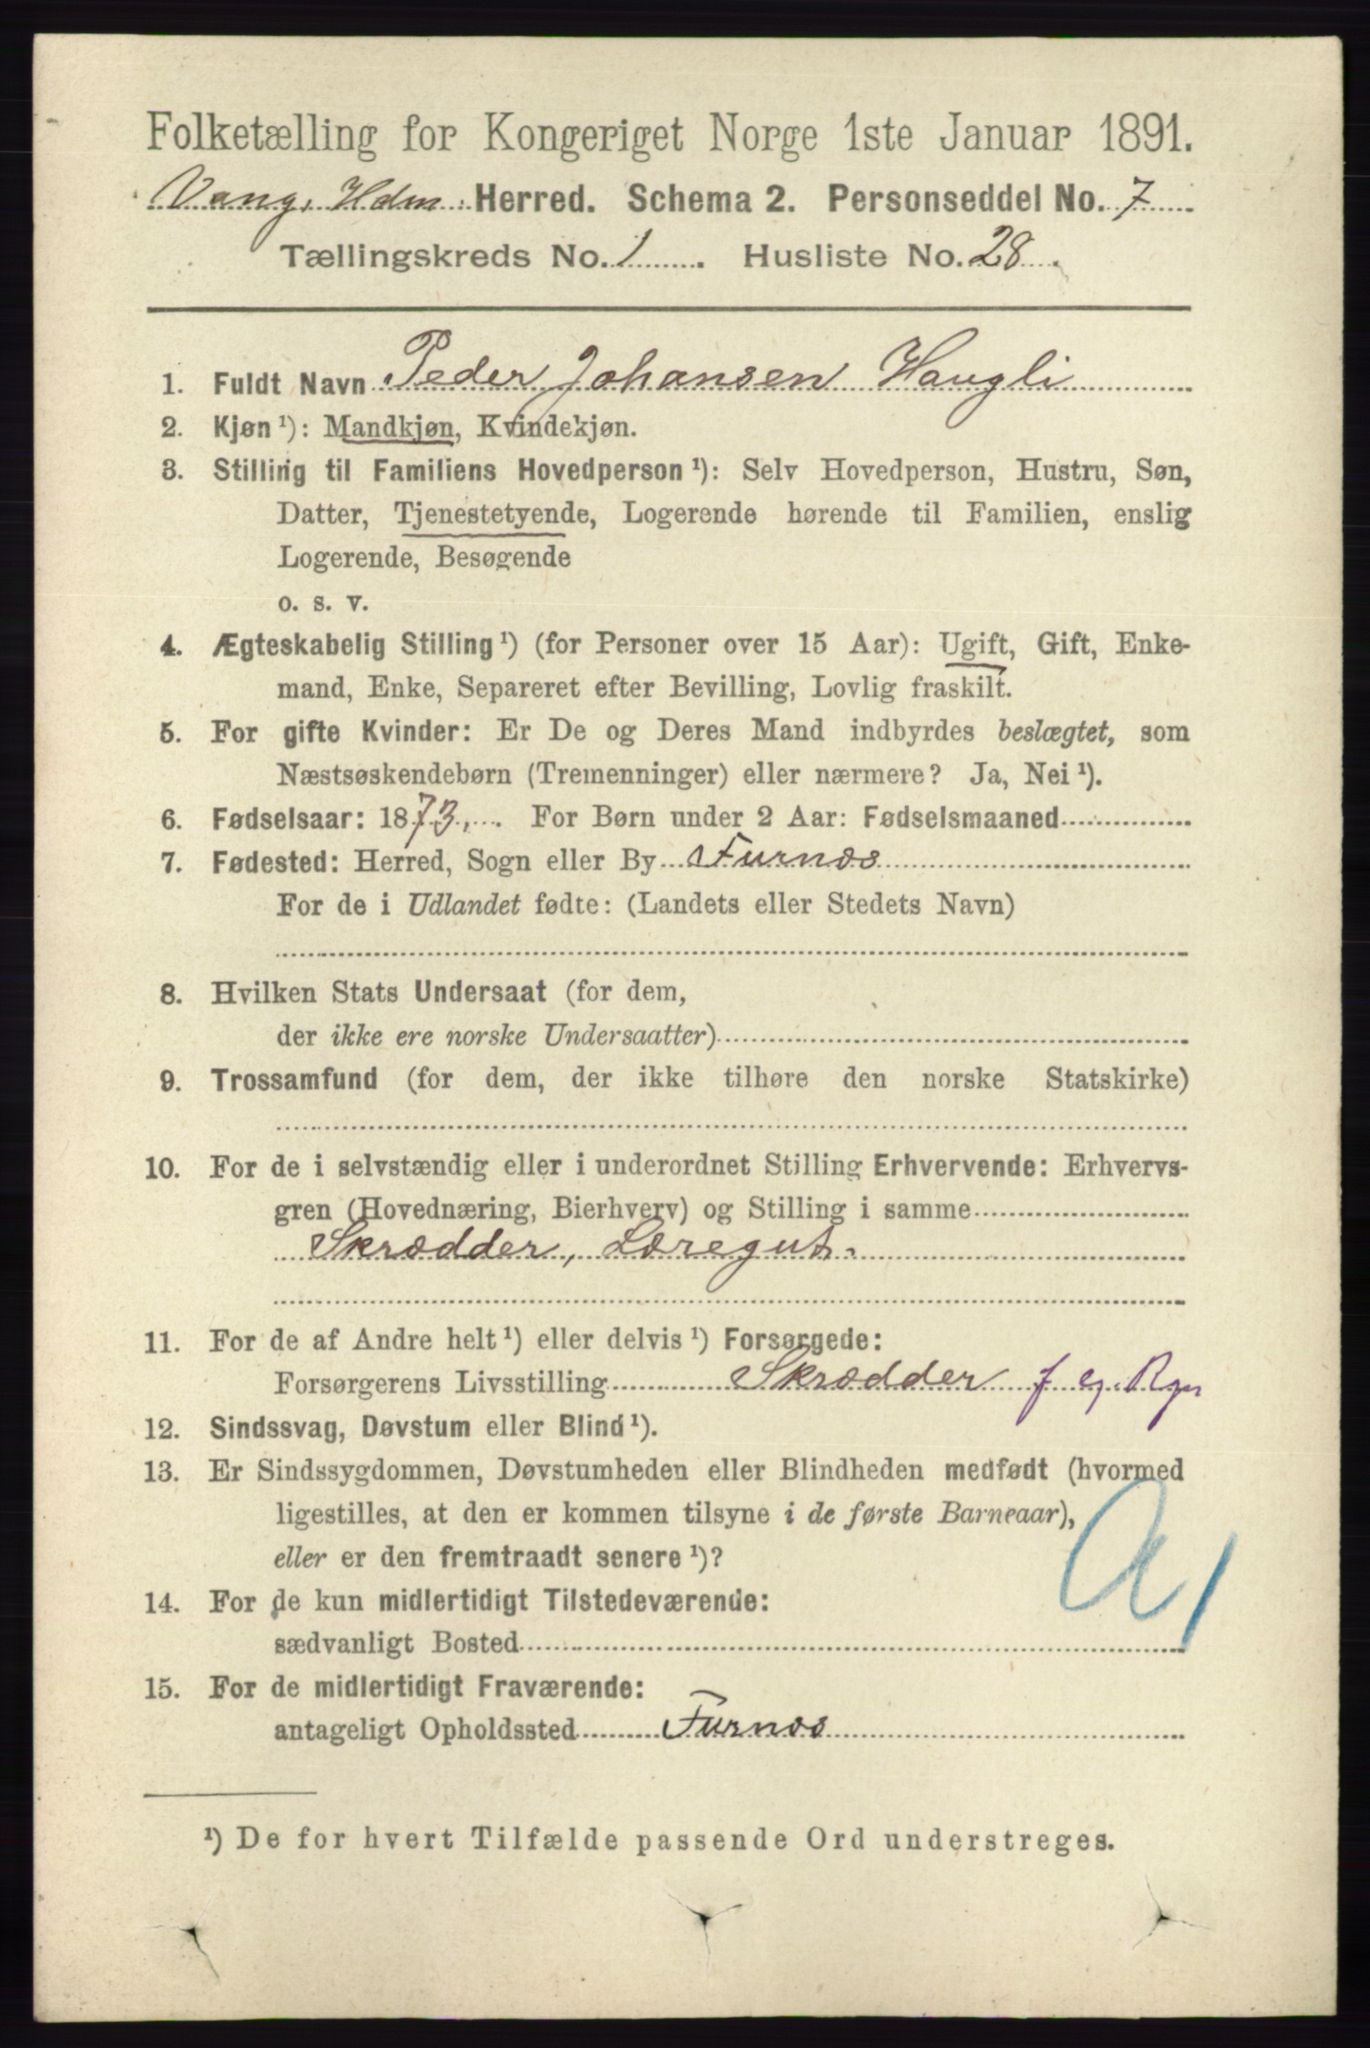 Folketælling for Kongeriget Norge 1ste Januar 1891.
Vang, Hdm. Herred. Schema 2. Personseddel No. 7
Tællingskreds No. 1. Husliste No. 28.
1. Fuldt Navn Peder Johansen Haugli
2. Kjøn ¹): Mandkjøn, Kvindekjøn.
3. Stilling til Familiens Hovedperson ¹): Selv Hovedperson, Hustru, Søn,
Datter, Tjenestetyende, Logerende hørende til Familien, enslig
Logerende, Besøgende
o. s. v.
4. Ægteskabelig Stilling ¹) (for Personer over 15 Aar): Ugift, Gift, Enke-
mand, Enke, Separeret efter Bevilling, Lovlig fraskilt.
5. For gifte Kvinder: Er De og Deres Mand indbyrdes beslægtet, som
Næstsøskendebørn (Tremenninger) eller nærmere? Ja, Nei ¹).
6. Fødselsaar: 1873. For Børn under 2 Aar: Fødselsmaaned
7. Fødested: Herred, Sogn eller By Furnæs
For de i Udlandet fødte: (Landets eller Stedets Navn)
8. Hvilken Stats Undersaat (for dem,
der ikke ere norske Undersaatter)
9. Trossamfund (for dem, der ikke tilhøre den norske Statskirke)
10. For de i selvstændig eller i underordnet Stilling Erhvervende: Erhvervs-
gren (Hovednæring, Bierhverv) og Stilling i samme
Skrædder, Læregut.
11. For de af Andre helt ¹) eller delvis ¹) Forsørgede:
Forsørgerens Livsstilling Skrædder f eg. Rgn
12. Sindssvag, Døvstum eller Blind ¹).
13. Er Sindssygdommen, Døvstumheden eller Blindheden medfødt (hvormed
ligestilles, at den er kommen tilsyne i de første Barneaar),
eller er den fremtraadt senere ¹)?
14. For de kun midlertidigt Tilstedeværende:
sædvanligt Bosted
15. For de midlertidigt Fraværende:
antageligt Opholdssted Furnæs
¹) De for hvert Tilfælde passende Ord understreges.